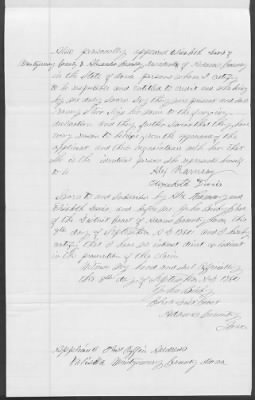 Also personally appeared Elizabeth Davis of
Montgomery County & Alexander Ramsey residents of Adams County
in the State of Iowa persons whom I certify
to be respectable and entitled to credit and who being
by me duly sworn say they were present and saw
sign her name to the foregoing
declaration and they further swear that they have
every reason to believe from the appearance of the
applicant and their acquaintance with her that
she is the identical person she represents herself
to be
Alex Ramsey
Elizabeth Davis
Sworn to and subscribed by Alex Ramsey and
Elizabeth Davis
of the District Court of Adams County Iowa this
day of September A.D. 1880 and I hereby
certify that I have no interest direct or indirect
in the prosecution of this claim
Witness my hand and seal officially
this day of September A.D. 1880
Clerk Dist Court
Adams County
Iowa
Applicants Post Office Address
Villisca Montgomery County Iowa